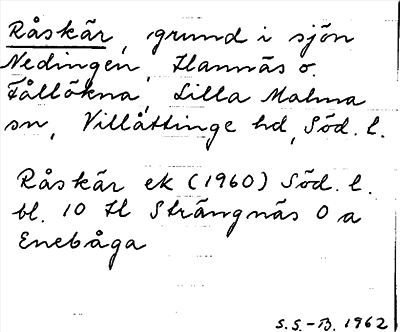 Råskär, grund i sjön
Nedingen, Hannäs o.
Fållökna, Lilla Malma
sn, Villåttinge hd, Söd. l.
Råskär ek (1960) Söd. l.
bl. 10 H Strängnäs O a
Enebåga
S.S.-B. 1962